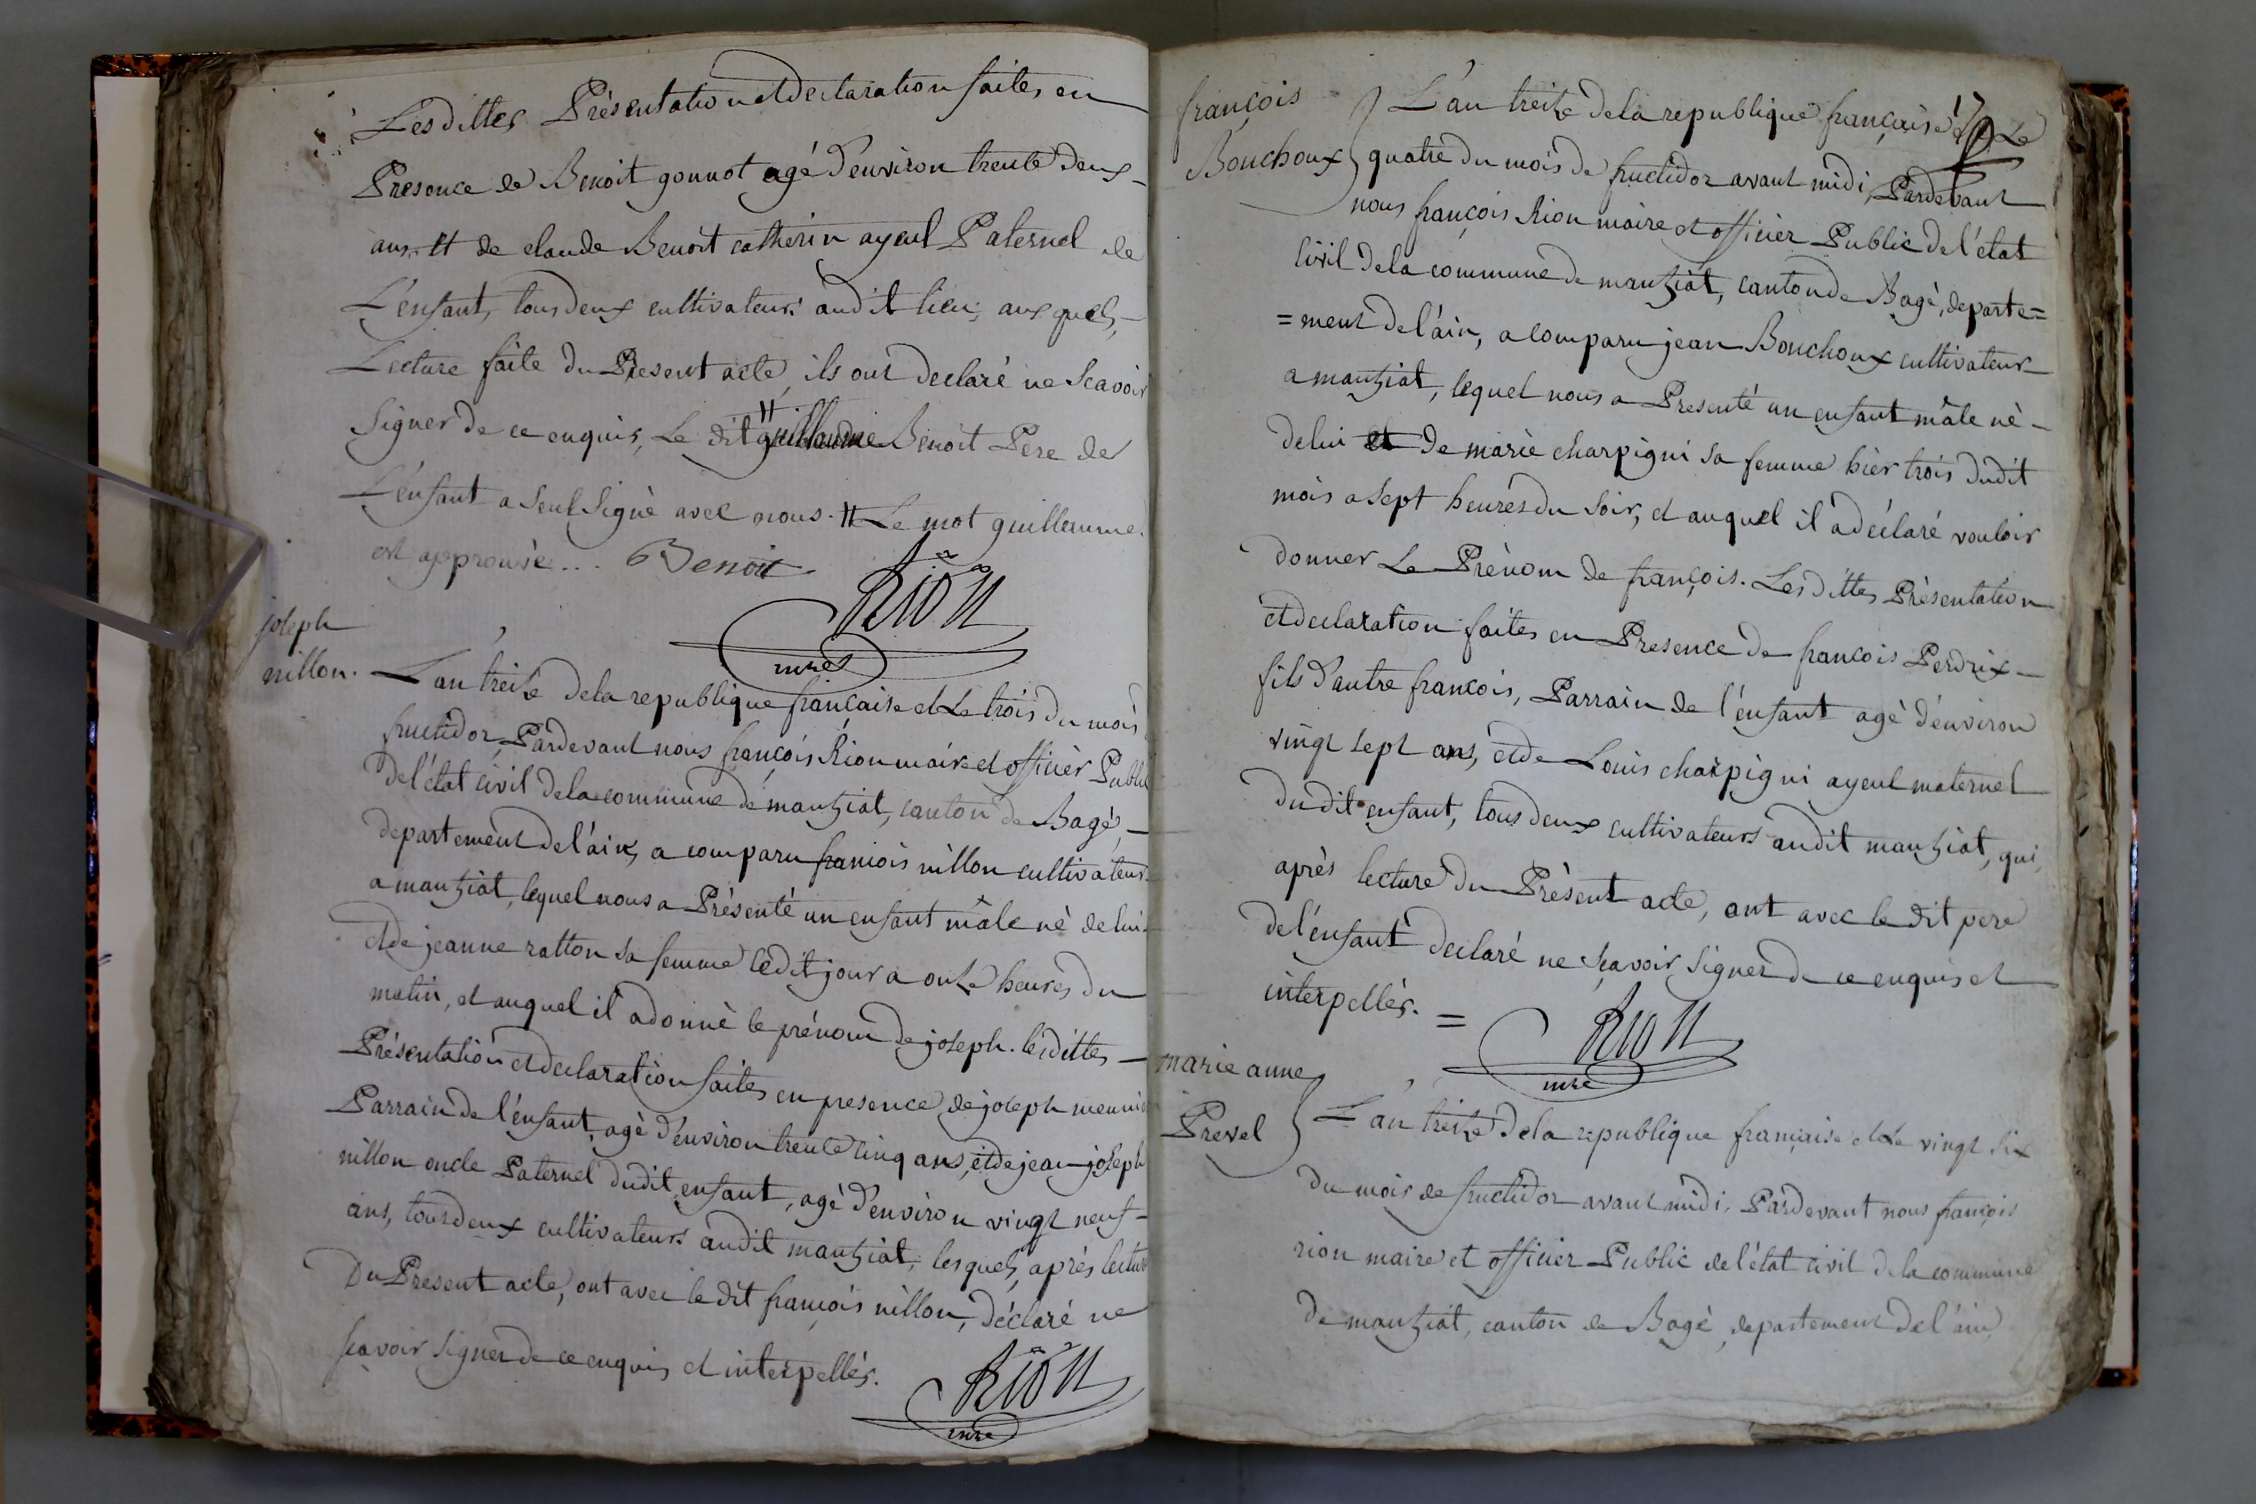 Lesdittes Présentation et declaration faites en
Presence de Benoit gonnot agé d'environ trente deux
ans et de claude Benoit catherin ayeul Paternel de
L'enfant, tous deux cultivateurs audit lieu, aux quels,
Lecture faite du Present acte, ils ont declaré ne Scavoir
Signer de ce enquis, Le dit guillaume Benoit Pere de
L'enfant a Seul Signé avec nous. # Le mot guillaume
est approuvée... Benoit
Rion
mre
joseph
nillon.
L'an treize de la republique française et Le trois du mois
fructidor, Pardevant nous françois Rion maire et officier Public
de l'état civil de la commune de mantziat, canton de Bagé,
departement de l'ain, a comparu francois nillon cultivateur
a mantziat, lequel nous a Présenté un enfant mâle né de lui
et de jeanne ratton sa femme cedit jour a onze heures du
matin, et auquel il a donné le prénom de joseph. lesdittes
Présentation et declaration faites en presence de joseph meunier
Parrain de l'énfant, agé d'environ trente cinq ans, et de jean joseph
nillon oncle Paternel dudit enfant, agé d'environ vingt neuf
ans, tous deux cultivateurs audit mantziat, lesquels, après lecture
Du Present acte, ont avec le dit françois nillon, déclaré ne
scavoir signer de ce enquis et interpellés.
Rion
mre
françois
Bouchoux
L'an treize de la republique française et Le
quatre du mois de fructidor avant midi, Pardevant
nous françois Rion maire et officier Public de l'état
Civil de la commune de mantziat, canton de Bagé, departe=
=ment de l'ain, a comparu jean Bouchoux cultivateur
a mantziat, lequel nous a Presenté un enfant mâle né
de lui et de marie charpigni sa femme hier trois dudit
mois a Sept heures du Soir, et auquel il a déclaré vouloir
donner Le Prénom de françois. Lesdittes Présentation
et declaration faites en Presence de françois Perdrix
fils d'autre françois, Parrain de l'énfant agé d'environ
vingt sept ans, et de Louis charpigni ayeul maternel
du dit enfant, tous deux cultivateurs audit mantziat, qui,
après lecture du Présent acte, ont avec le dit pere
de l'énfant declaré ne Sçavoir Signer de ce enquis et
interpellés. =
Rion
mre
marie anne
Prevel
L'an treize de la republique française et Le vingt Six
Du mois de fructidor avant midi, Pardevant nous françois
rion maire et officier Public de l'état civil de la commune
De mantziat, canton de Bagé, departement de l'ain